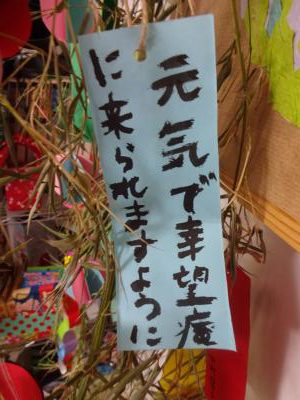 元気で幸望庵
に来られますように